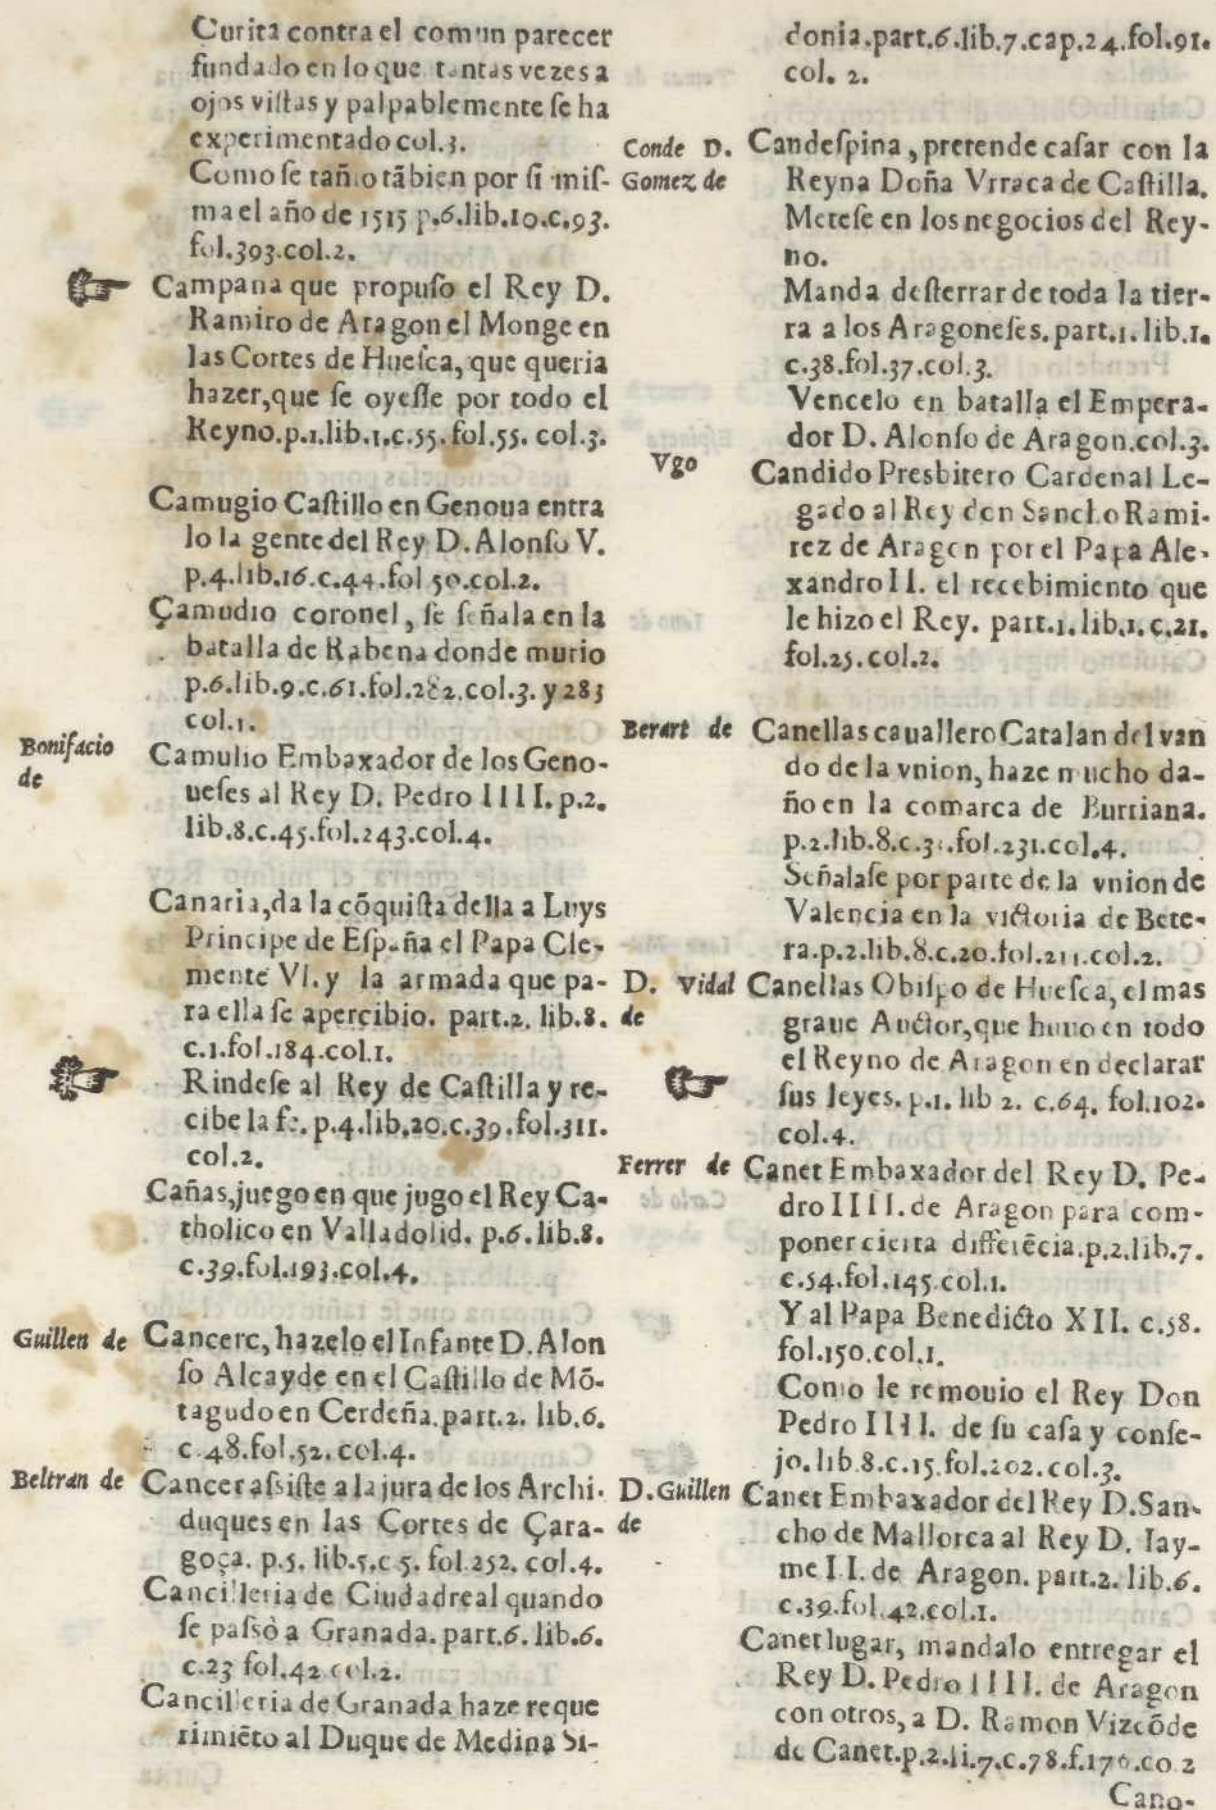 Curita contra el comun parecer
fundado en lo que tantas vezes a
ojos vistas y palpablemente ſe ha
experimentado col.3.
Como ſe tañio tãbien por ſi miſ-
ma el año de 1515 p.6.lib.10.c.93.
fol.393.col.2.
Campana que propuſo el Rey D.
Ramiro de Aragon el Monge en
las Cortes de Hueſca, que queria
hazer,que ſe oyeſſe por todo el
Reyno.p.1.lib.1.c.55.fol.55. col.3.
Camugio Caſtillo en Genoua entra
lo la gente del Rey D. Alonſo V.
p.4.lib.16.c.44.fol 50.col.2.
Çamudio coronel, ſe ſeñala en la
batalla de Rabena donde murio
p.6.lib.9.c.61.fol.282.col.3. y 283
col.1.
Bonifacio de Camulio Embaxador de los Geno-
ueſes al Rey D. Pedro IIII. p.2.
lib.8.c.45.fol.243.col.4.
Canaria,da la cõquiſta della a Luys
Principe de Eſpaña el Papa Cle-
mente VI. y la armada que pa-
ra ella ſe apercibio. part.2. lib.8.
c.1.fol.184.col.1.
Rindeſe al Rey de Caſtilla y re-
cibe la fe. p.4.lib.20.c.39.fol.311.
col.2.
Cañas,juego en que jugo el Rey Ca-
tholico en Valladolid. p.6.lib.8.
c.39.fol.193.col.4.
Guillen de Cancerc, hazelo el Infante D. Alon
ſo Alcayde en el Caſtillo de Mõ-
tagudo en Cerdeña.part.2. lib.6.
c.48.fol.52.col.4.
Beltran de Cancer aſsiſte a la jura de los Archi-
duques en las Cortes de Çara-
goça. p.5. lib.5.c 5. fol.252. col.4.
Cancilleria de Ciudadreal quando
ſe paſsò a Granada.part.6.lib.6.
c.23 fol.42 col.2.
Cancilleria de Granada haze reque
rimiẽto al Duque de Medina Si-
donia.part.6.lib.7.cap.24.fol.91.
col. 2.
Conde D. Gomez de Candeſpina, pretende caſar con la
Reyna Doña Vrraca de Caſtilla.
Meteſe en los negocios del Rey-
no.
Manda deſterrar de toda la tier-
ra a los Aragoneſes.part.1.lib.1.
c.38.fol.37.col.3.
Vencelo en batalla el Empera-
dor D. Alonſo de Aragon.col.3.
Vgo Candido Presbitero Cardenal Le-
gado al Rey don Sancho Rami-
rez de Aragon por el Papa Ale-
xandro II. el recebimiento que
le hizo el Rey. part.1.lib.1.c.21.
fol.25.col.2.
Berart de Canellas cauallero Catalan del van
do de la vnion, haze mucho da-
ño en la comarca de Burriana.
p.2.lib.8.c.3 .fol.231.col.4.
Señalaſe por parte de la vnion de
Valencia en la victoria de Bete-
ra.p.2.lib.8.c.20.fol.211.col.2.
D. Vidal de Canellas Obiſpo de Hueſca, el mas
graue Auctor,que huuo en todo
el Reyno de Aragon en declarar
ſus leyes. p.1. lib 2. c.64. fol.102.
col.4.
Ferrer de Canet Embaxador del Rey D. Pe-
dro IIII. de Aragon para com-
poner cierta differẽcia.p.2.lib.7.
c.54.fol.145.col.1.
Y al Papa Benedicto XII. c.58.
fol.150.col.1.
Como le remouio el Rey Don
Pedro IIII. de ſu caſa y conſe-
jo.lib.8.c.15.fol.202.col.3.
D.Guillen de Canet Embaxador del Rey D.San-
cho de Mallorca al Rey D. Iay-
me II. de Aragon. part.2. lib.6.
c.39.fol.42.col.1.
Canet lugar, mandalo entregar el
Rey D. Pedro IIII. de Aragon
con otros, a D. Ramon Vizcõde
de Canet.p.2.li.7.c.78.f.176.co 2
Cano-